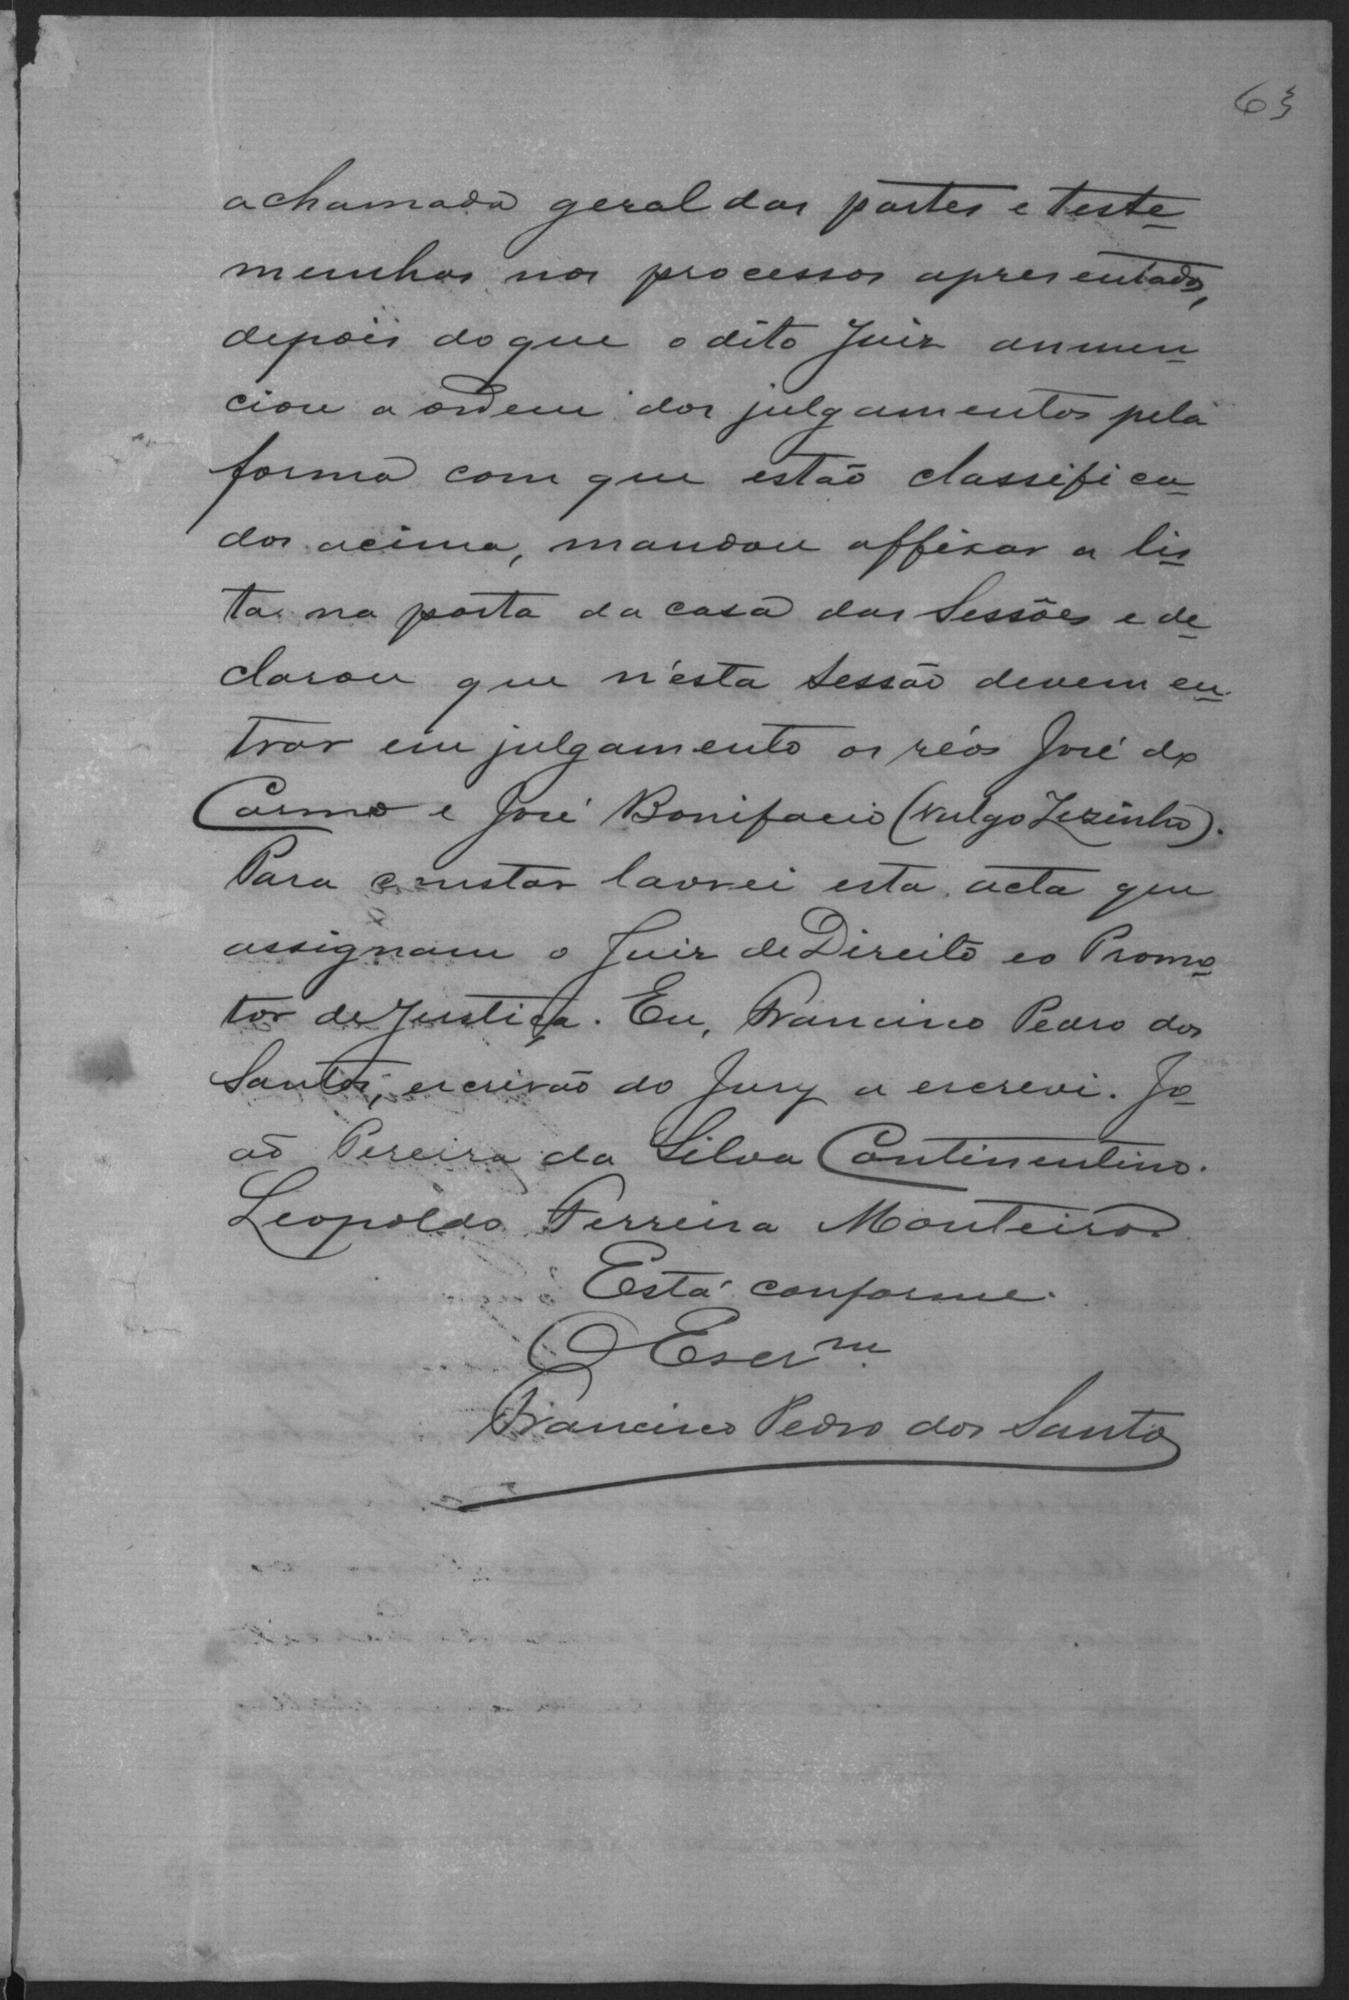 63
a chamada geral das partes e teste-
munhas nos processos apresentados,
depois do que o dito Juiz annun-
ciou a ordem dos julgamentos pela
forma com que estão classifica-
dos acima, mandou affixar a lis-
ta na porta da casa das Sessões e de-
clarou que n'esta sessão devem en-
trar em julgamento os réos José do
Carmo e José Bonifacio (vulgo Zezinho).
Para constar lavrei esta acta que
assignam o Juiz de Direito e o Promo-
tor de Justiça. Eu, Francisco Pedro dos
Santos, escrivão do Jury a escrevi. Jo-
ão Pereira da Silva Continentino.
Leopoldo Ferreira Monteiro.
Está conforme.
O Escr.m
Francisco Pedro dos Santos